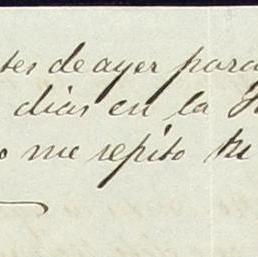 tes de ayer para
dias en la
o me repito tu